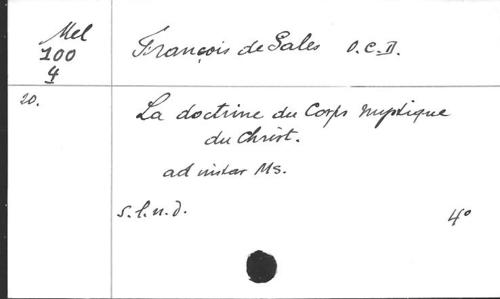 Mel
100
4
François de Sales O.C.D.
20.
La doctrine du Corps mystique
du Christ.
ad instar Ms.
s.l.n.d.
4°